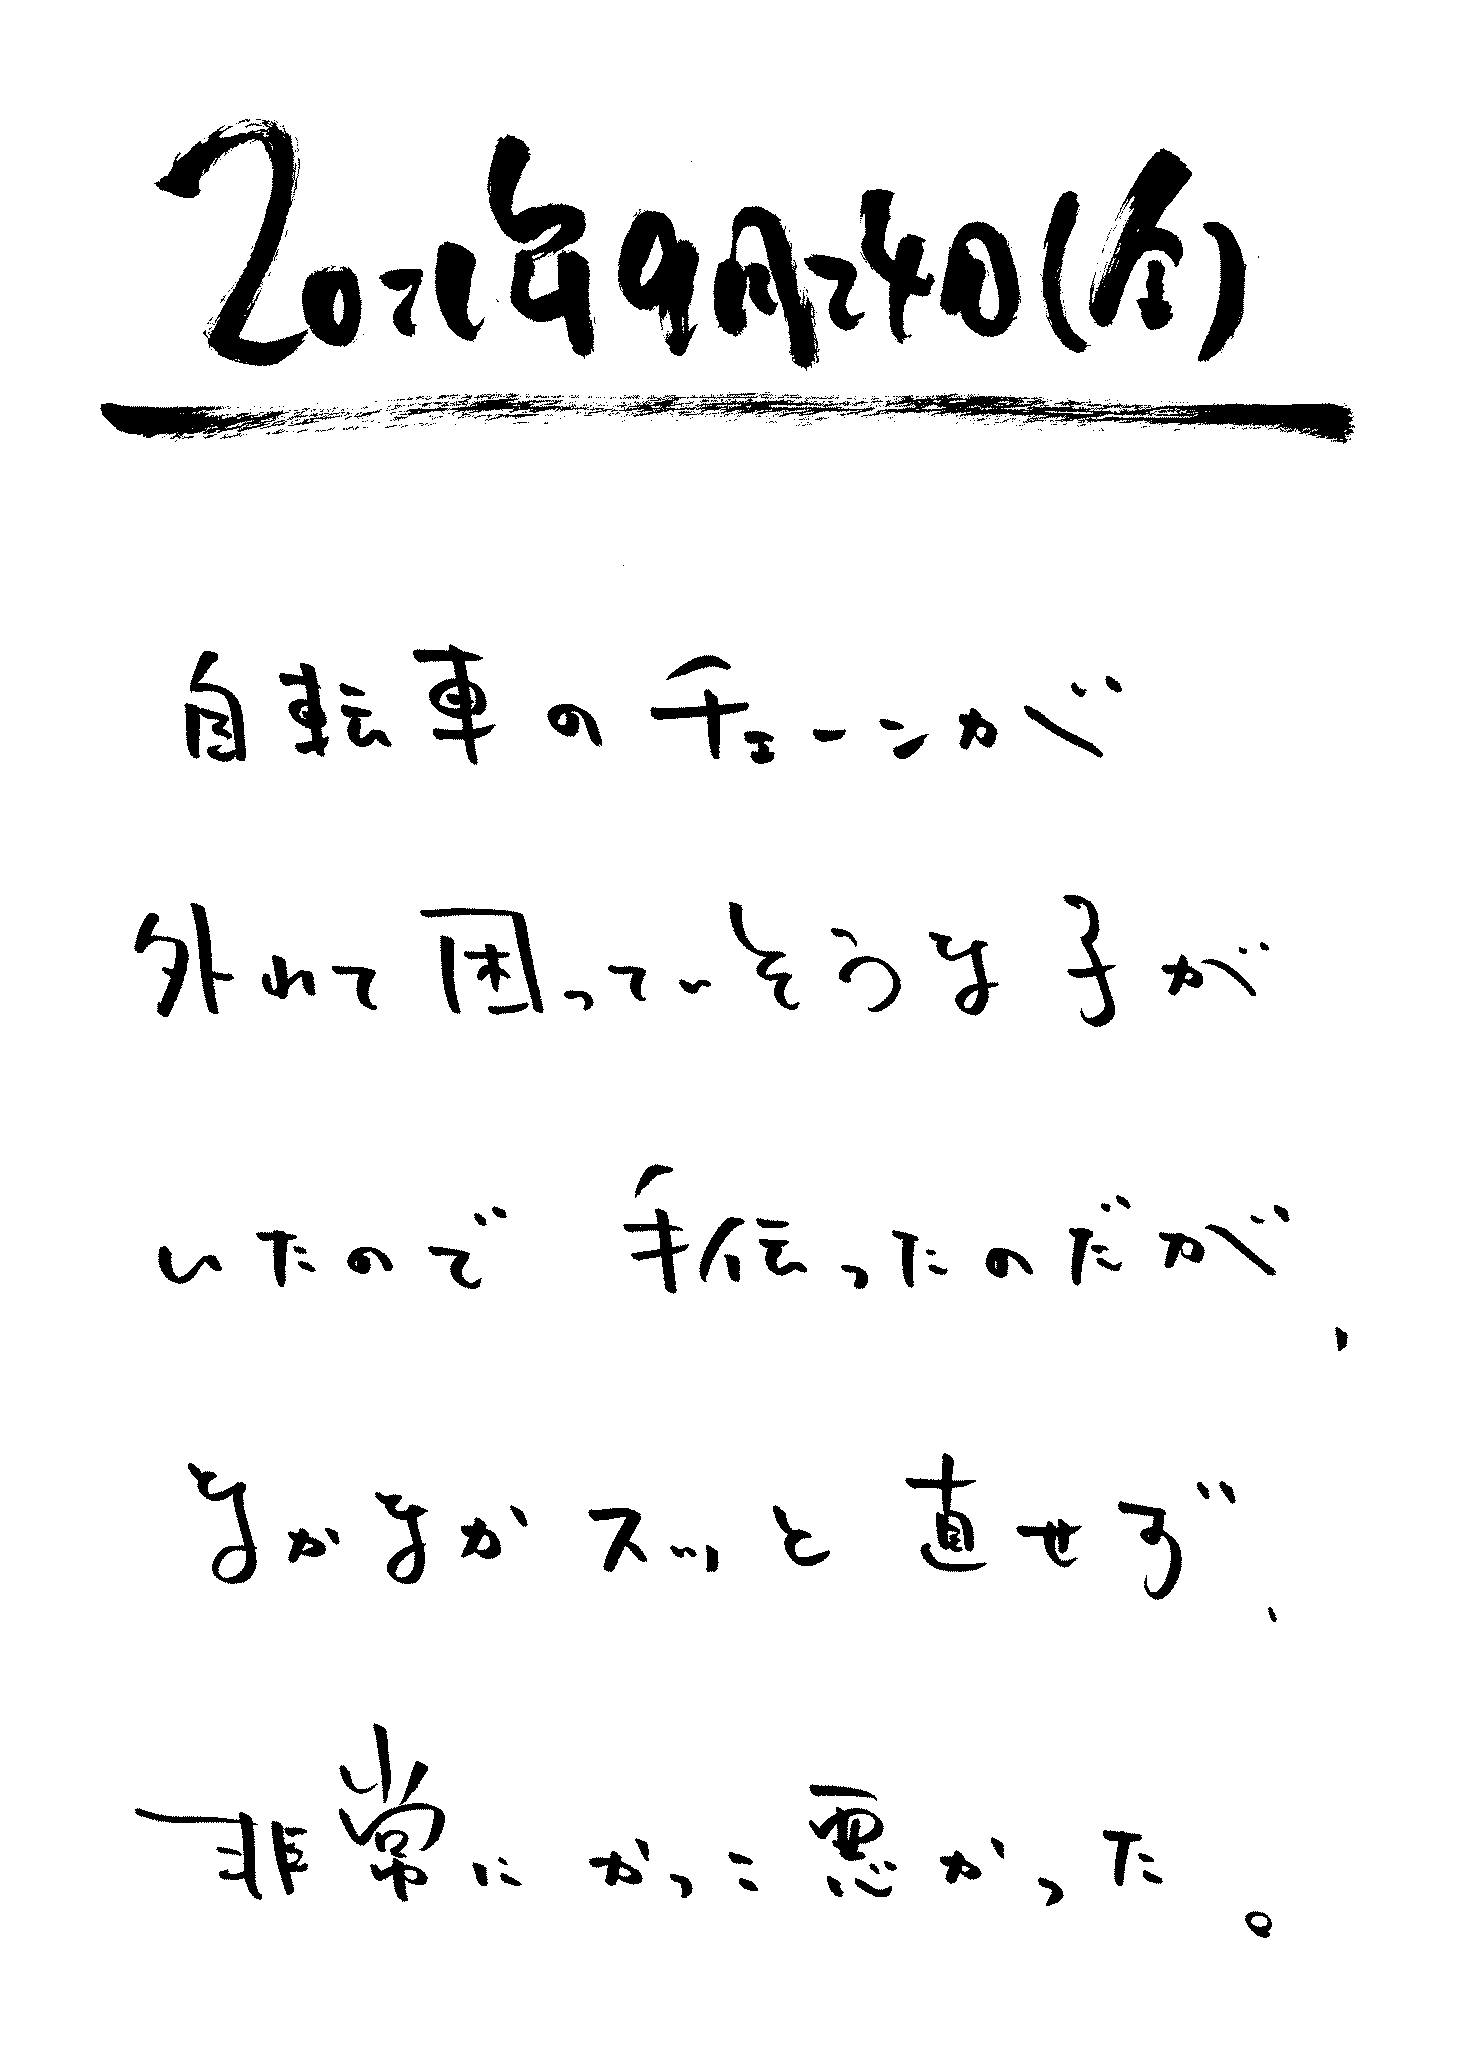 2021年9月24日(金)
自転車のチェーンが
外れて困っていそうな子が
いたので 手伝ったのだが、
なかなかスッと直せず、
非常にかっこ悪かった。